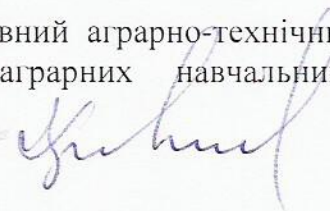 вний аграрно-технічни
аграрних навчальни